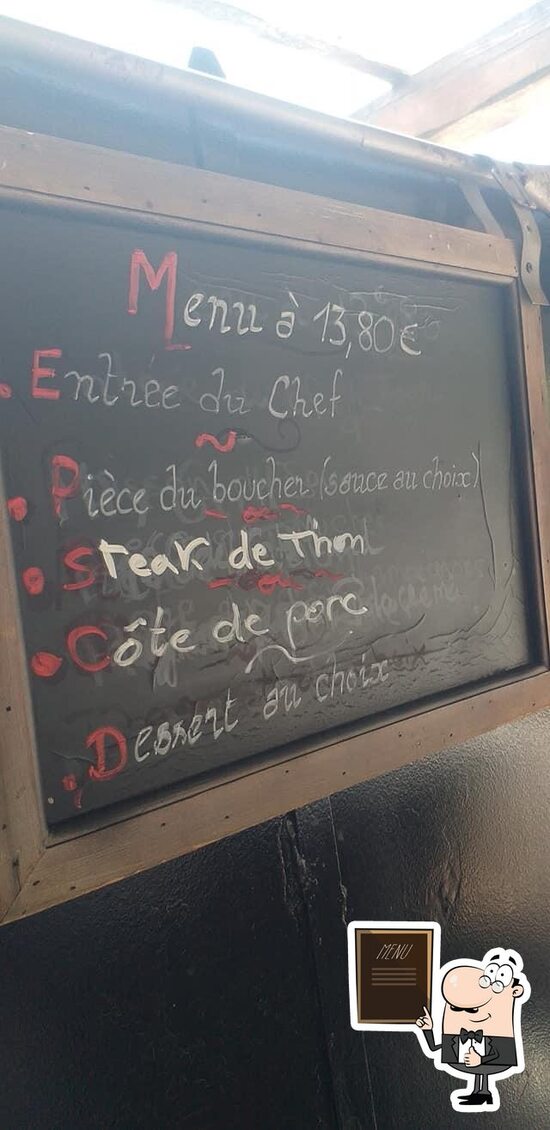 Menu à 13,80€
• Entrée du Chef
• Pièce du boucher (sauce au choix)
• Steak de Thon
• Côte de porc
• Dessert au choix
MENU